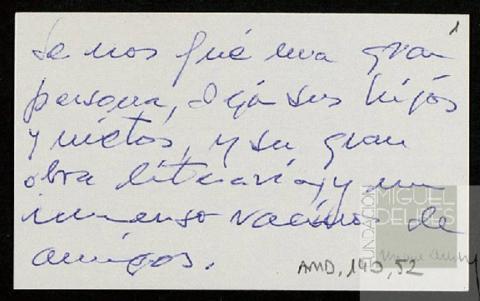 1
Se nos fué una gran
persona, deja sus hijos
y nietos, y su gran
obra literaria, y un
inmenso vacío de
amigos.
AMD, 140, 52
FUNDACIÓN
MIGUEL
DELIBES